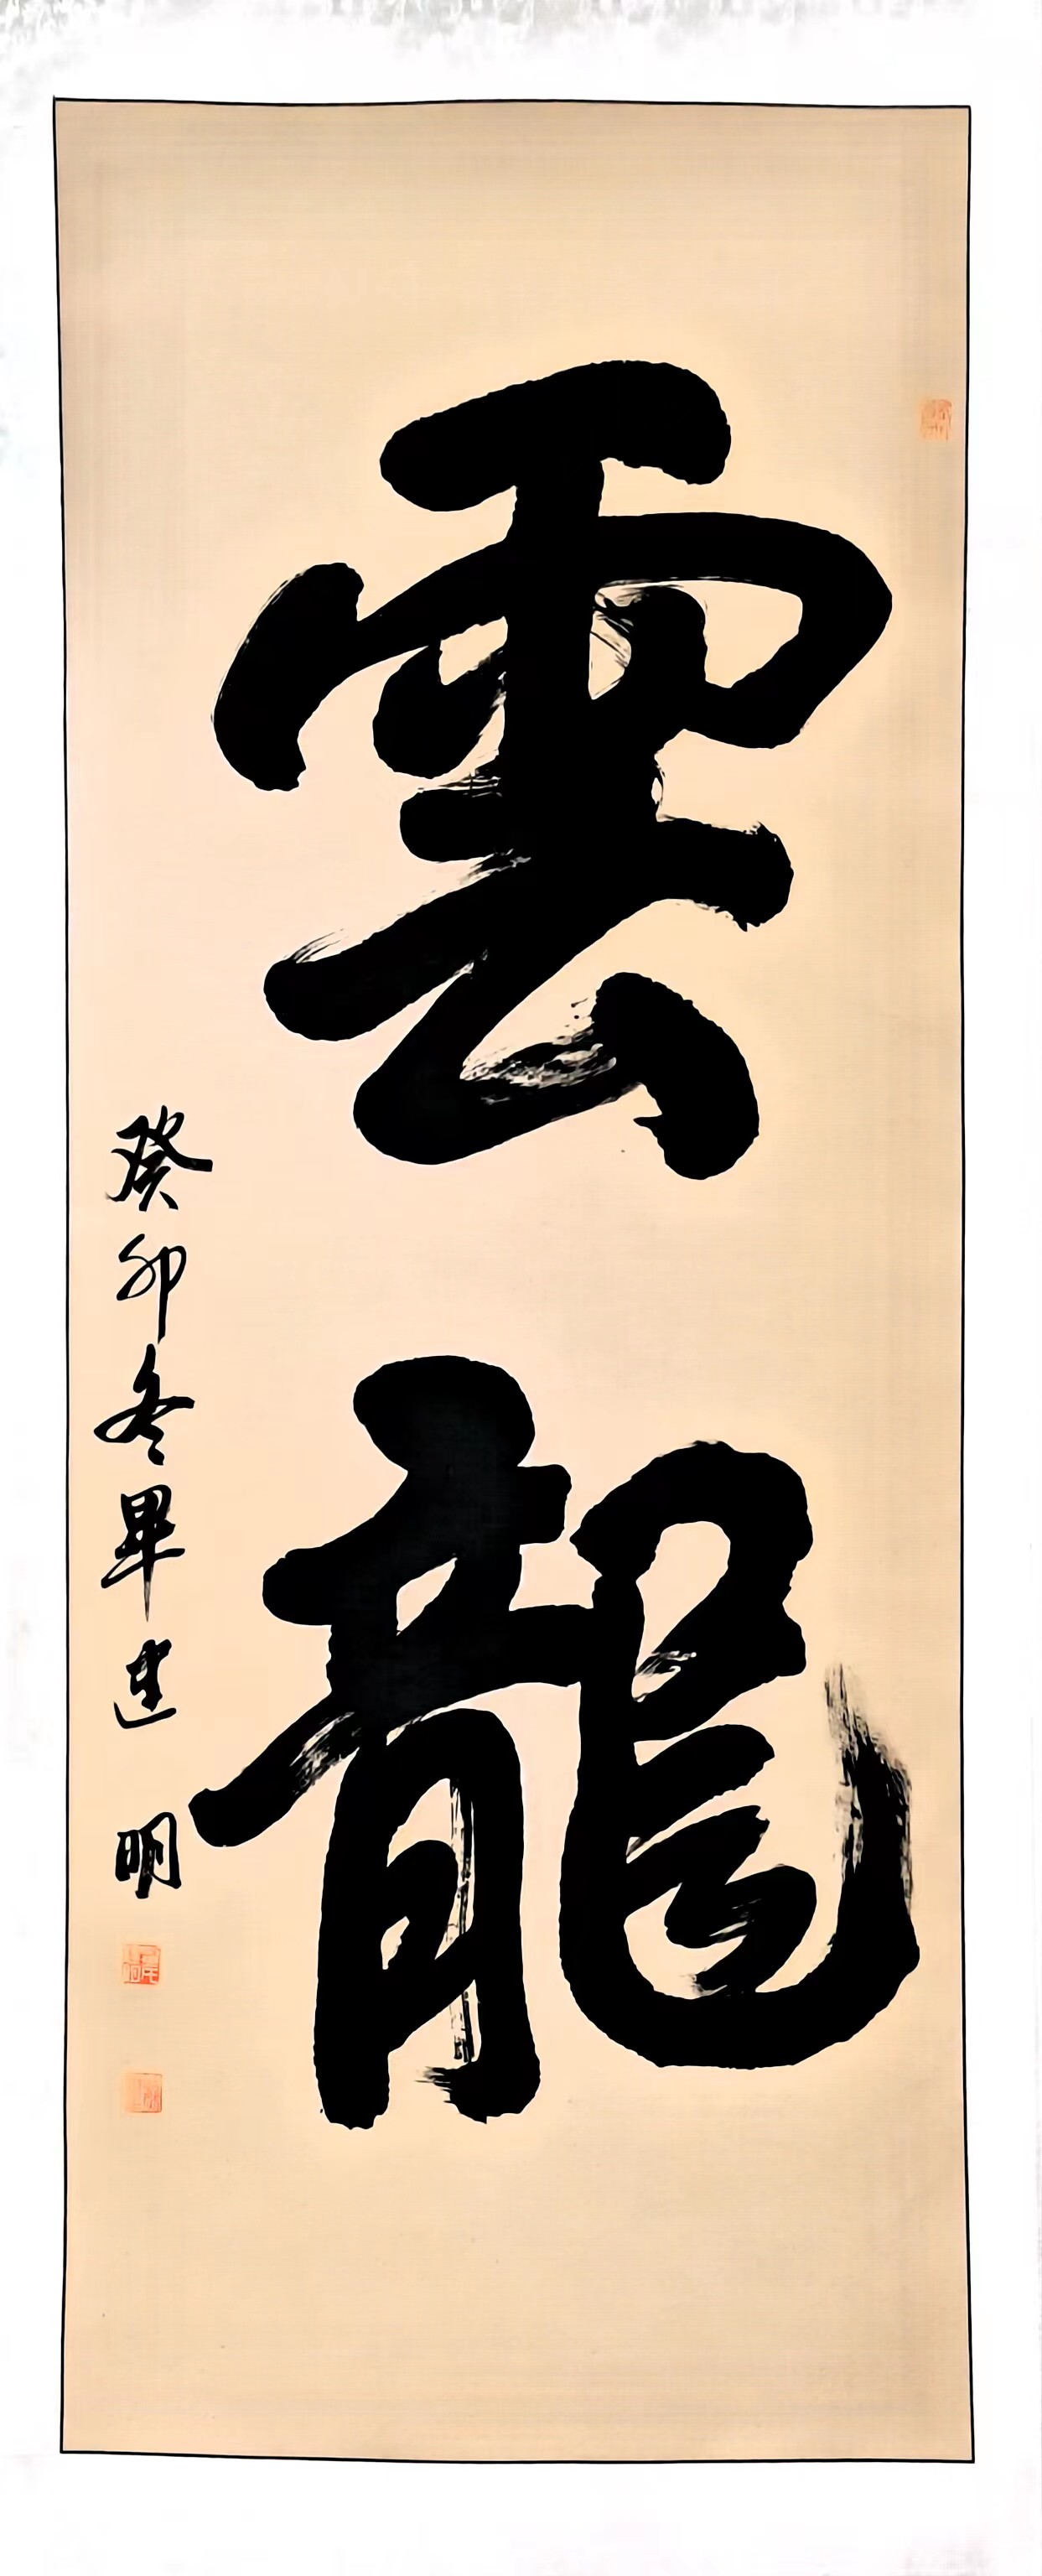 雲龍
癸卯冬畢建明